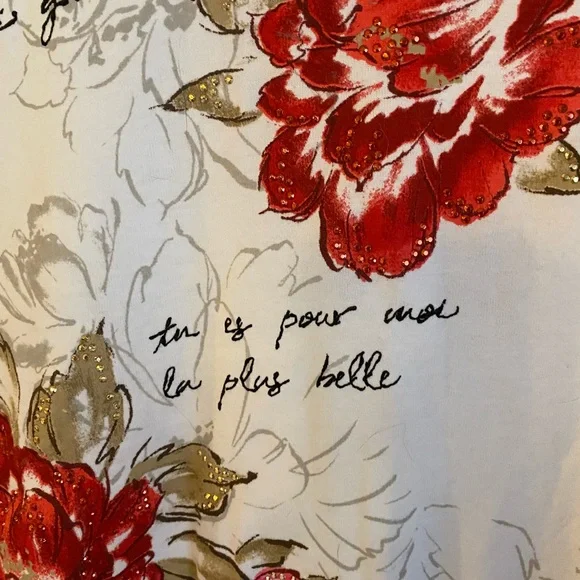 tu es pour moi
la plus belle